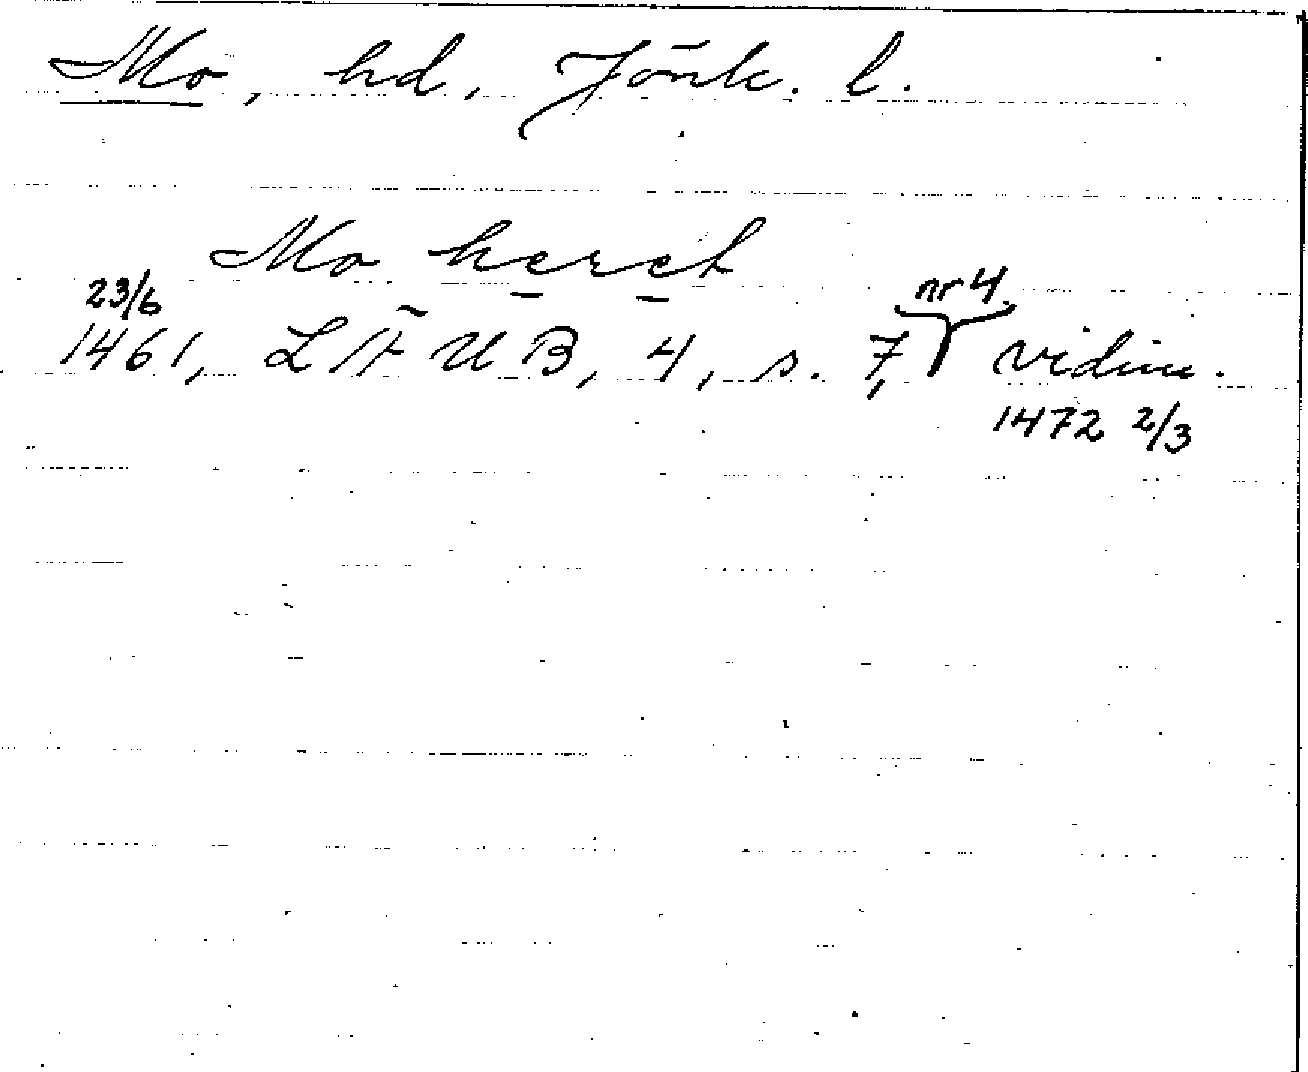 Mo, hd, Jönk. l.
Mo heret
23/6 nr 4
1461, LÄUB, 4, s. 7, vidim.
1472 2/3